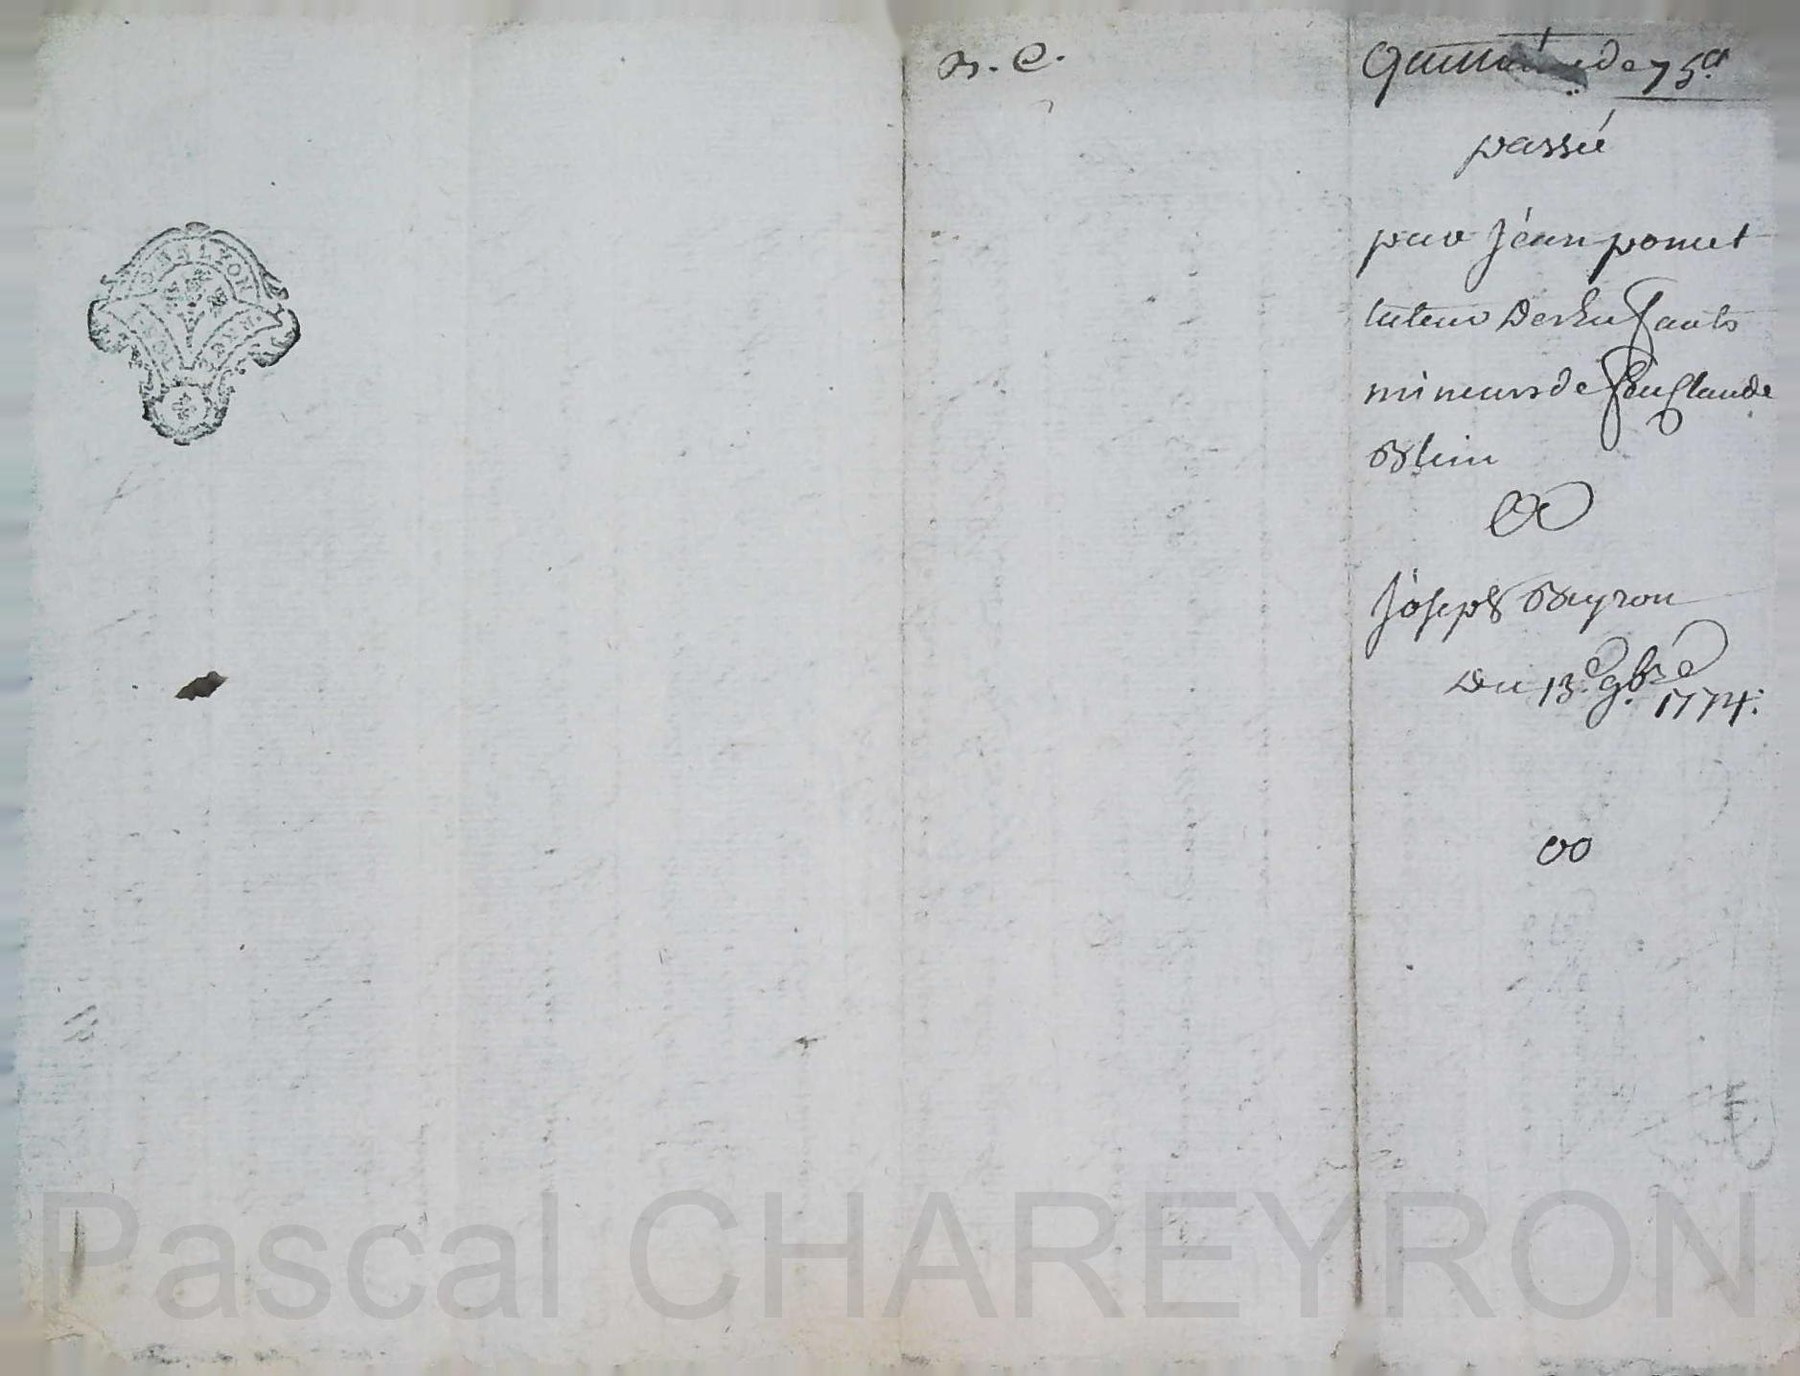 B. C.
Quittance de 75ˡᵗ
passé
par Jéan ponut
tuteur Des Enfants
mineurs de feu Claude
Blein
a
Joseph Beyron
Du 13.ᵉ 9.bre 1774.
GEN. DE LYON
Pascal CHAREYRON